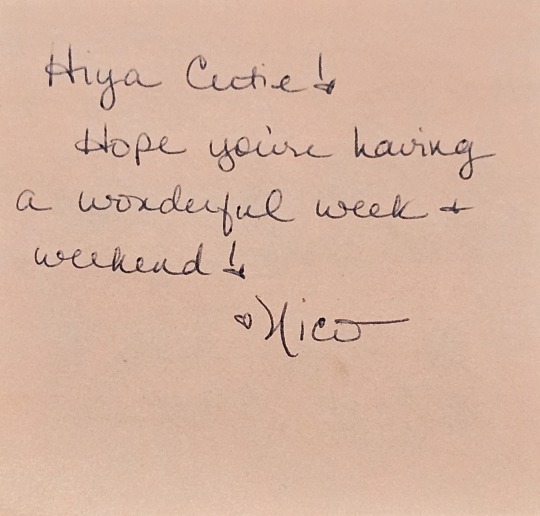 Hiya Cutie!
Hope you're having
a wonderful week +
weekend!
♡Nico